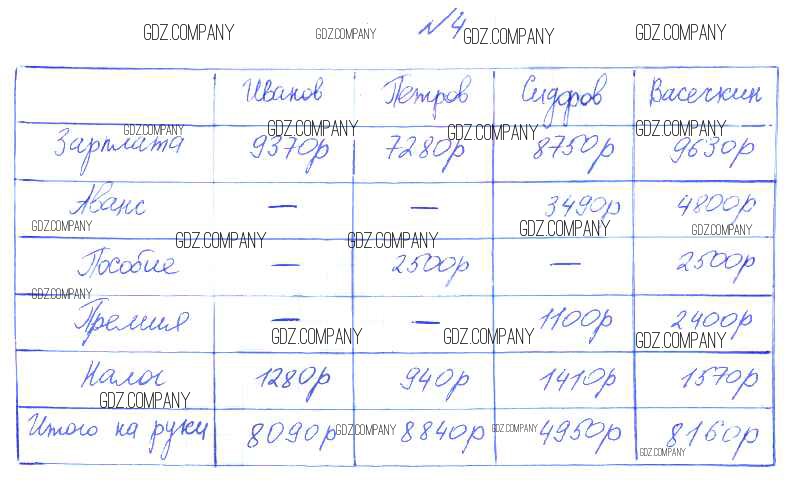 GDZ.COMPANY GDZ.COMPANY №4 GDZ.COMPANY GDZ.COMPANY
Иванов Петров Сидоров Васечкин
GDZ.COMPANY GDZ.COMPANY GDZ.COMPANY GDZ.COMPANY
Зарплата 9370р 7280р 8750р 9630р
Аванс — — 3490р 4800р
GDZ.COMPANY GDZ.COMPANY GDZ.COMPANY GDZ.COMPANY GDZ.COMPANY
Пособие — 2500р — 2500р
GDZ.COMPANY
Премия — — 1100р 2400р
GDZ.COMPANY GDZ.COMPANY GDZ.COMPANY
Налог 1280р 940р 1410р 1570р
GDZ.COMPANY
Итого на руки 8090р 8840р 4950р 8160р
GDZ.COMPANY GDZ.COMPANY GDZ.COMPANY